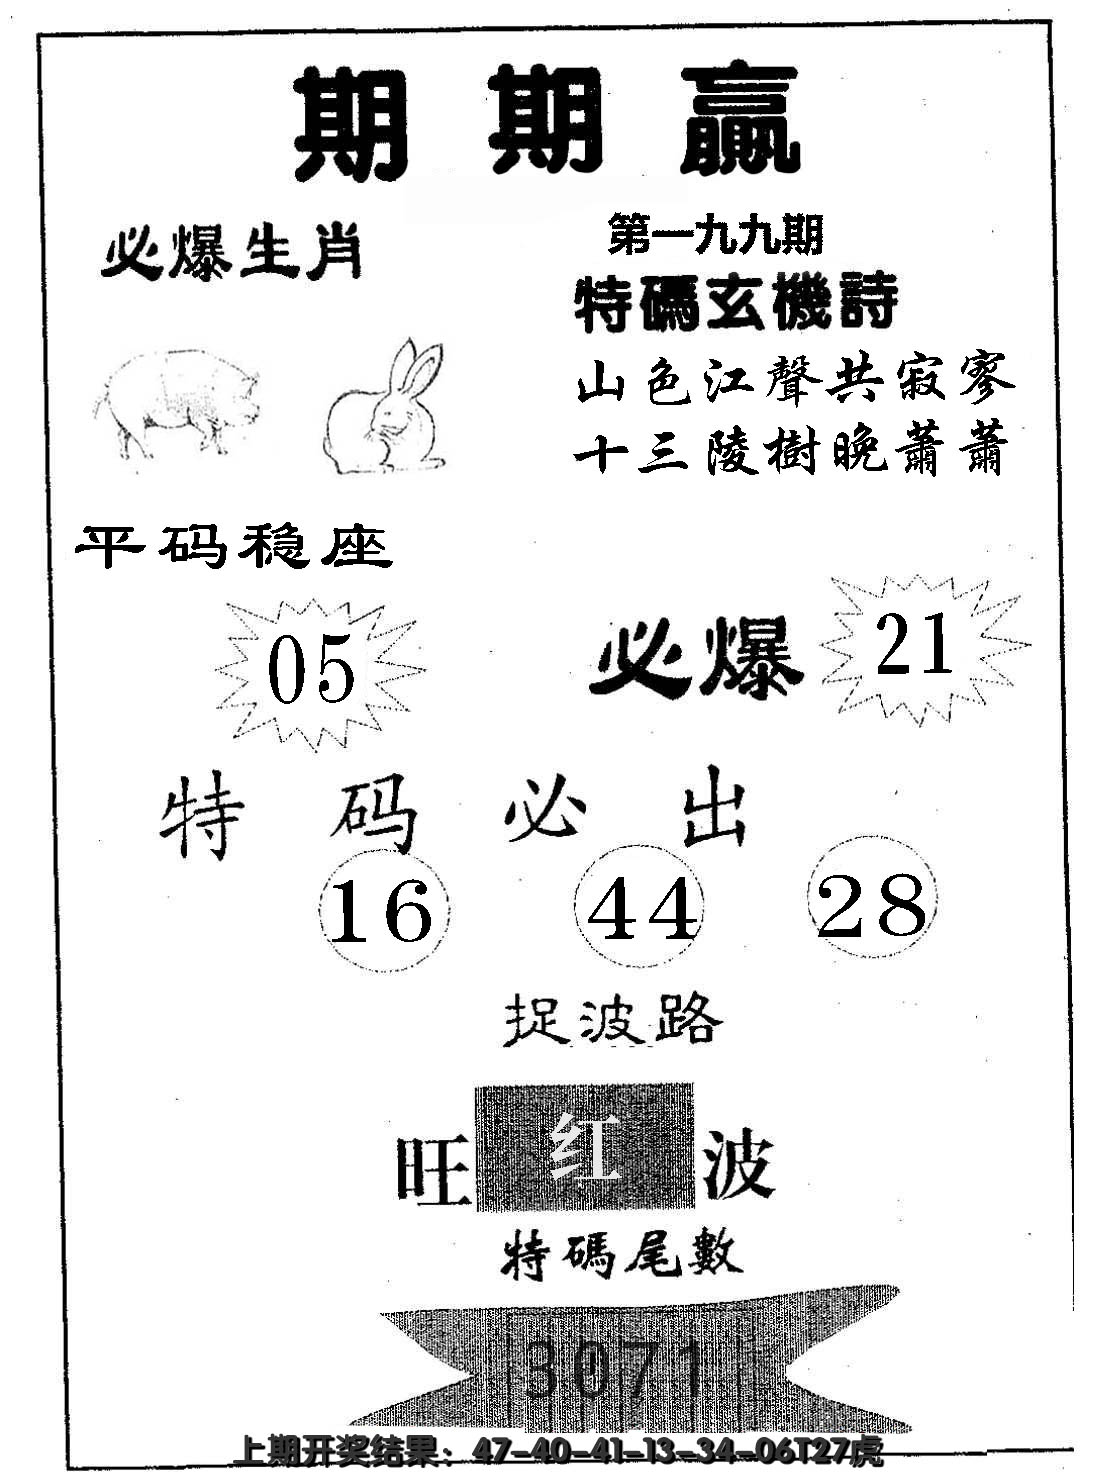 期期贏
必爆生肖
第一九九期
特碼玄機詩
山色江聲共寂寥
十三陵樹晚蕭蕭
平码稳座
05
必爆 21
特码必出
16 44 28
捉波路
旺红波
特碼尾數
3071
上期开奖结果：47-40-41-13-34-06T27虎